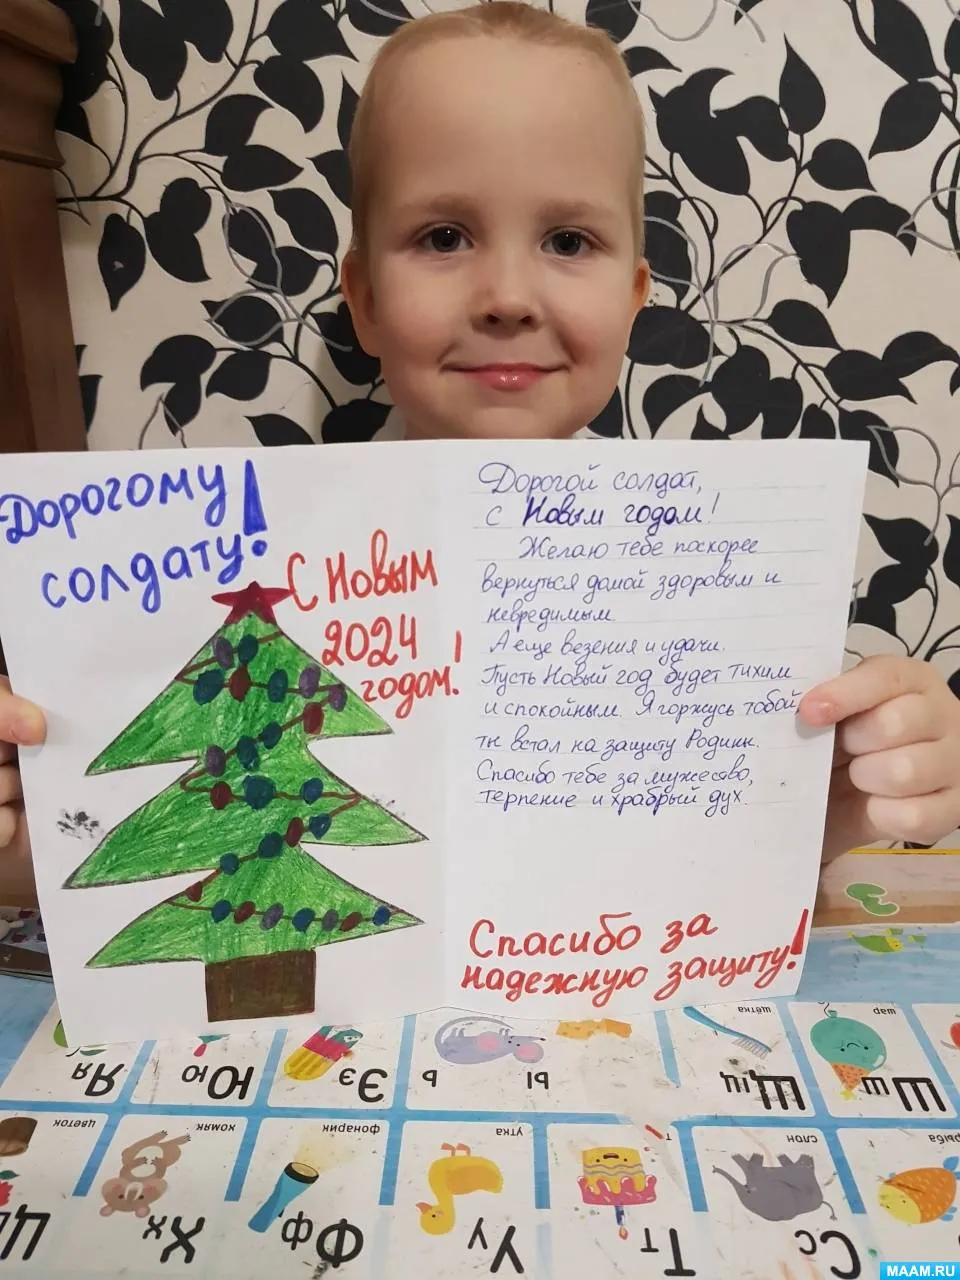 Дорогому
солдату!
С Новым
2024
годом!
Дорогой солдат,
с Новым годом!
Желаю тебе поскорее
вернуться домой здоровым и
невредимым.
А еще везения и удачи.
Пусть Новый год будет тихим
и спокойным. Я горжусь тобой,
ты встал на защиту Родины.
Спасибо тебе за мужество,
терпение и храбрый дух.
Спасибо за
надежную защиту!
Яя
Юю
Ээ
Ь
Ы
Щщ
щётка
Шш
шар
цветок
Хх
хомяк
Фф
фонарик
Уу
утка
Тт
Сс
слон
рыба
MAAM.RU